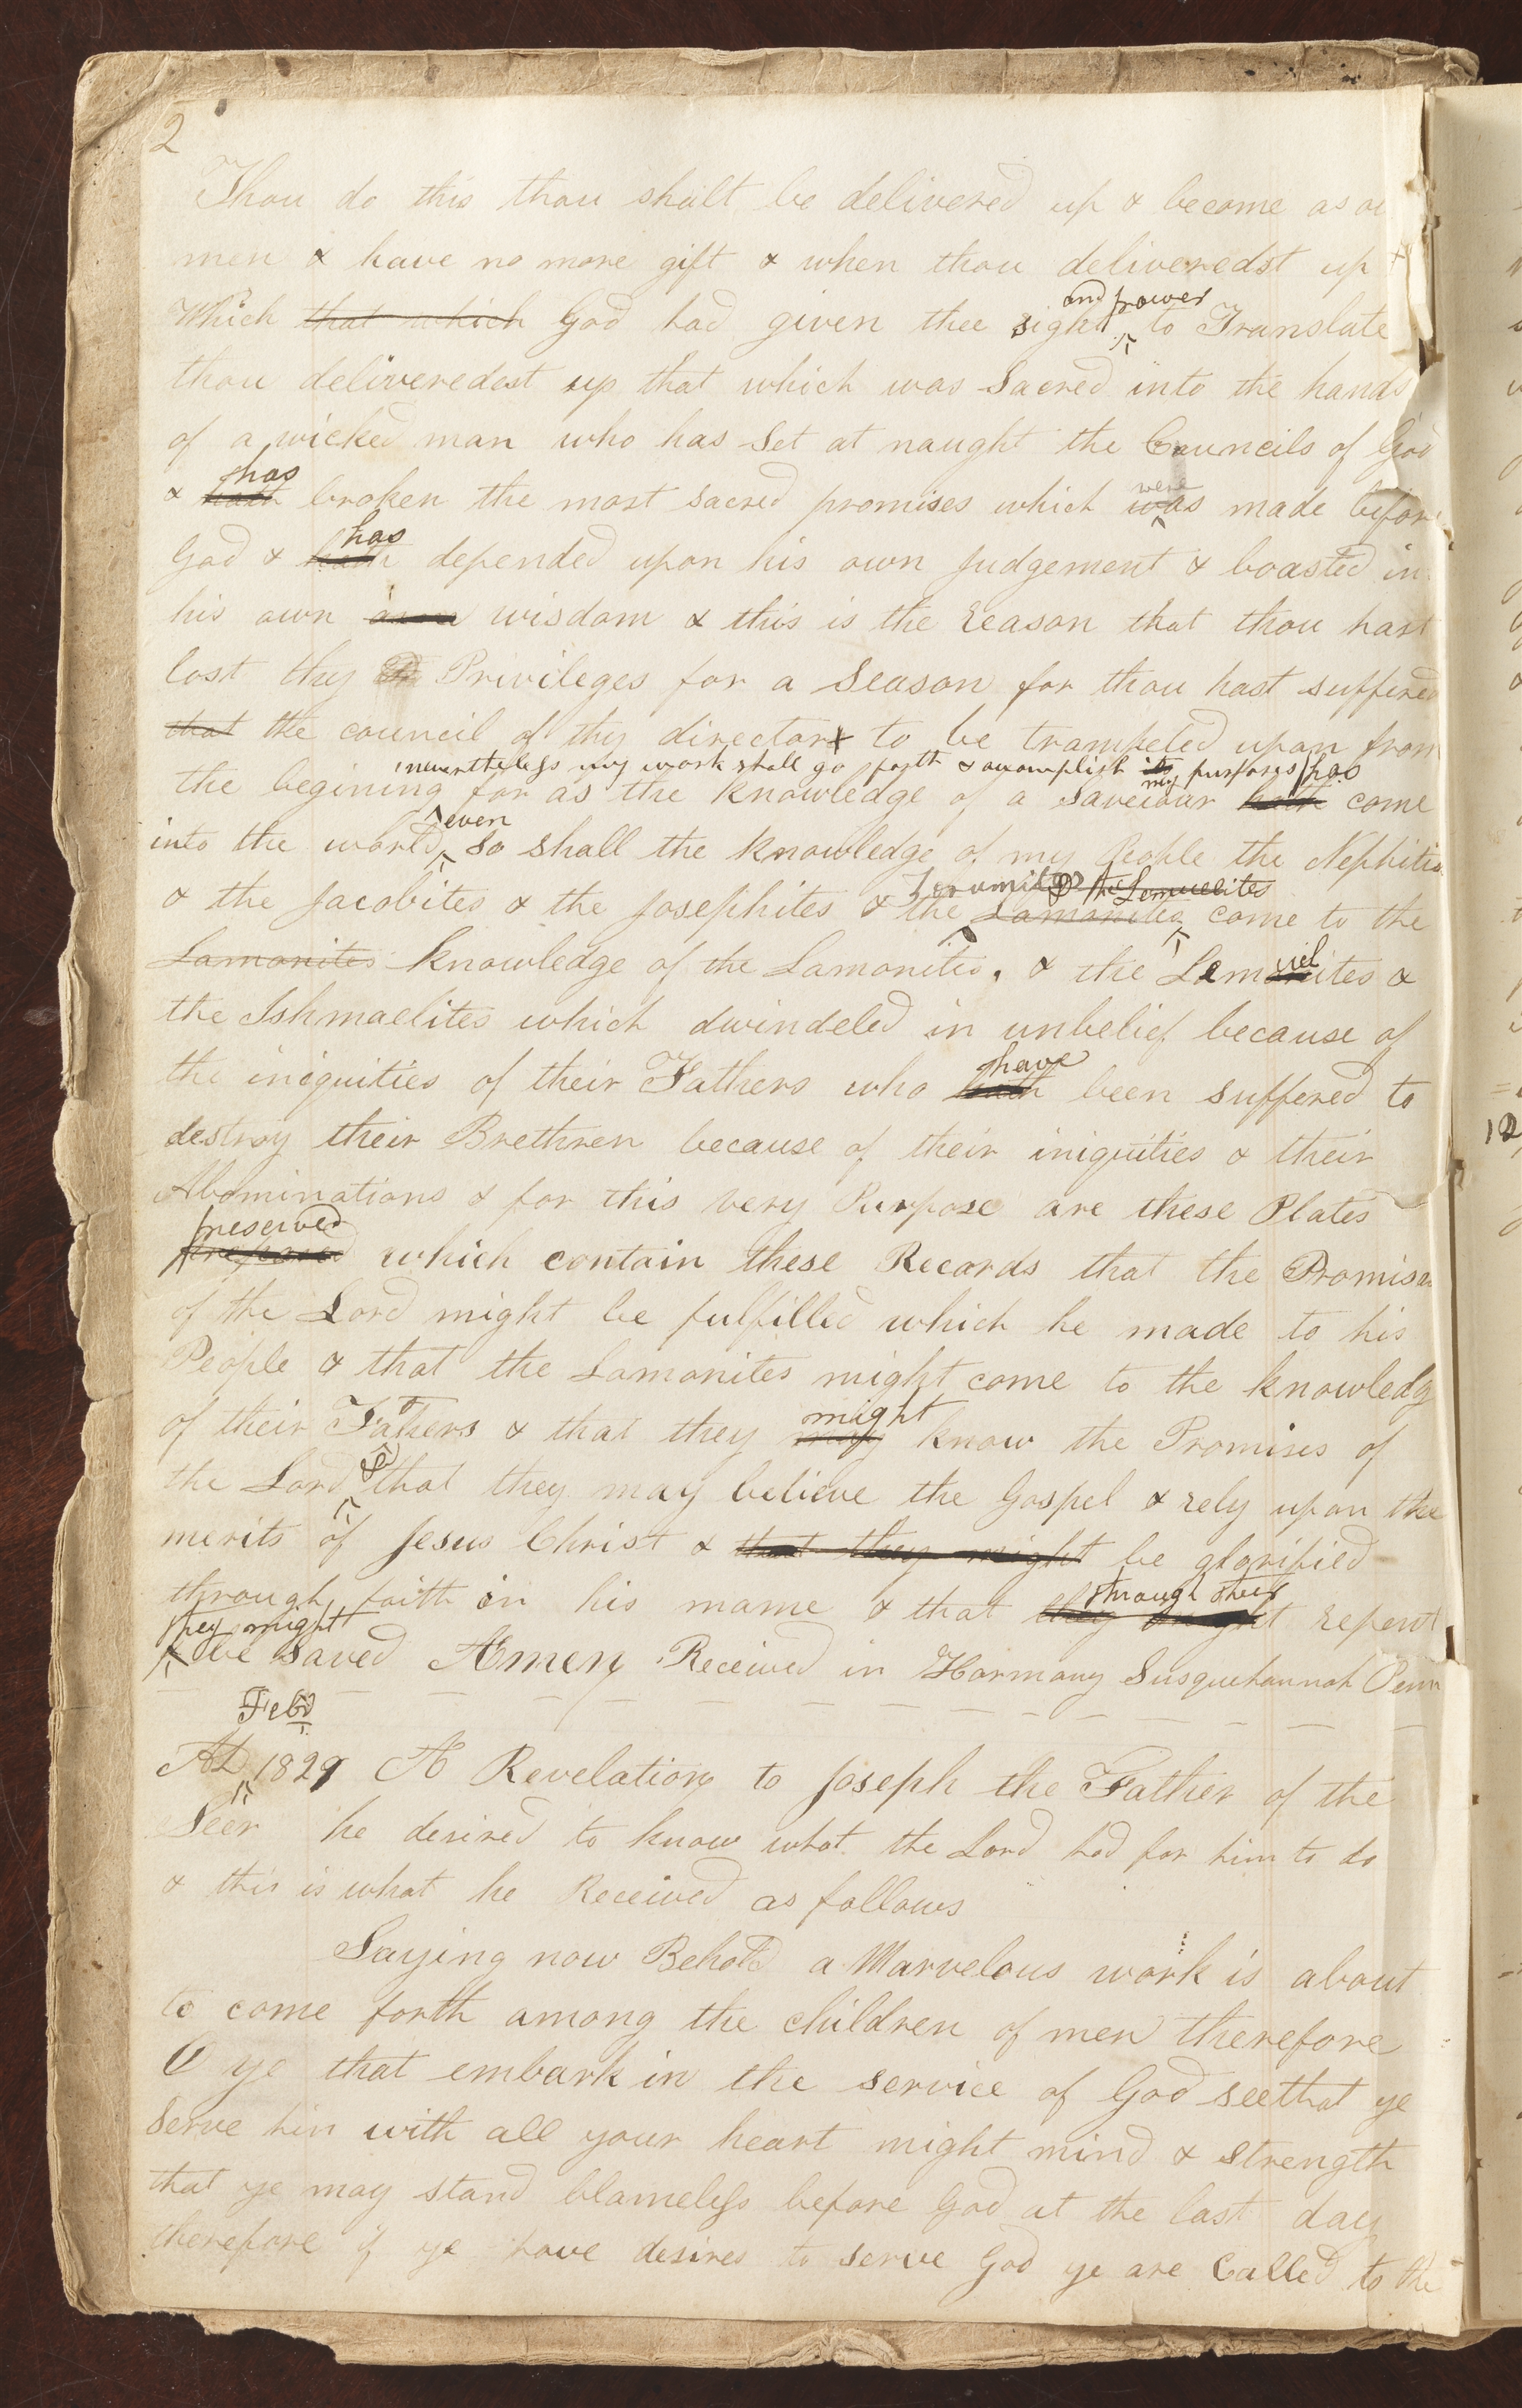 2
Thou do this thou shalt be delivered up & become as
men & have no more gift & when thou deliveredst up
and power
Which that which God had given thee sight to Translate
thou deliveredst up that which was Sacred into the hands
of a wicked man who has Set at naught the Councils of God
has were
& hath broken the most sacred promises which was made befor
has
God & hath depended upon his own Judgement & boasted in
his own wisdom & this is the reason that thou hast
lost thy Privileges for a Season for thou hast suffered
that the council of thy director to be trampeled upon from
nevertheless my work shall go forth & accomplish its my purposes has
the begining for as the knowledge of a Saveiour hath come
even
into the world so shall the knowledge of my People the Nephites
Zoramites & the Lemuelites
& the Jacobites & the Josephites & the Lamanites come to the
Lamanites knowledge of the Lamanites. & the Lemuelites &
the Ishmaelites which dwindeled in unbelief because of
have
the iniquities of their Fathers who hath been suffered to
destroy their Brethren because of their iniquities & their
Abominations & for this very Purpose are these Plates
preserved
prepared which contain these Records that the Promises
of the Lord might be fulfilled which he made to his
People & that the Lamanites might come to the knowledg
might
of their Fathers & that they may know the Promises of
&
the Lord that they may believe the Gospel & rely upon the
merits of Jesus Christ & that they might be glorified
through their
through faith in his mame & that they might repent
they might
be Saved Amen Received in Harmony Susquehannah Penn
Feb.
AD 1829 A Revelation to Joseph the Father of the
Seer he desired to know what the Lord had for him to do
& this is what he Received as follows
Saying now Behold a Marvelous work is about
to come forth among the children of men therefore
O ye that embark in the service of God see that ye
Serve him with all your heart might mind & strength
that ye may stand blameless before God at the last day
therefore if ye have desires to serve God ye are Called to the
12